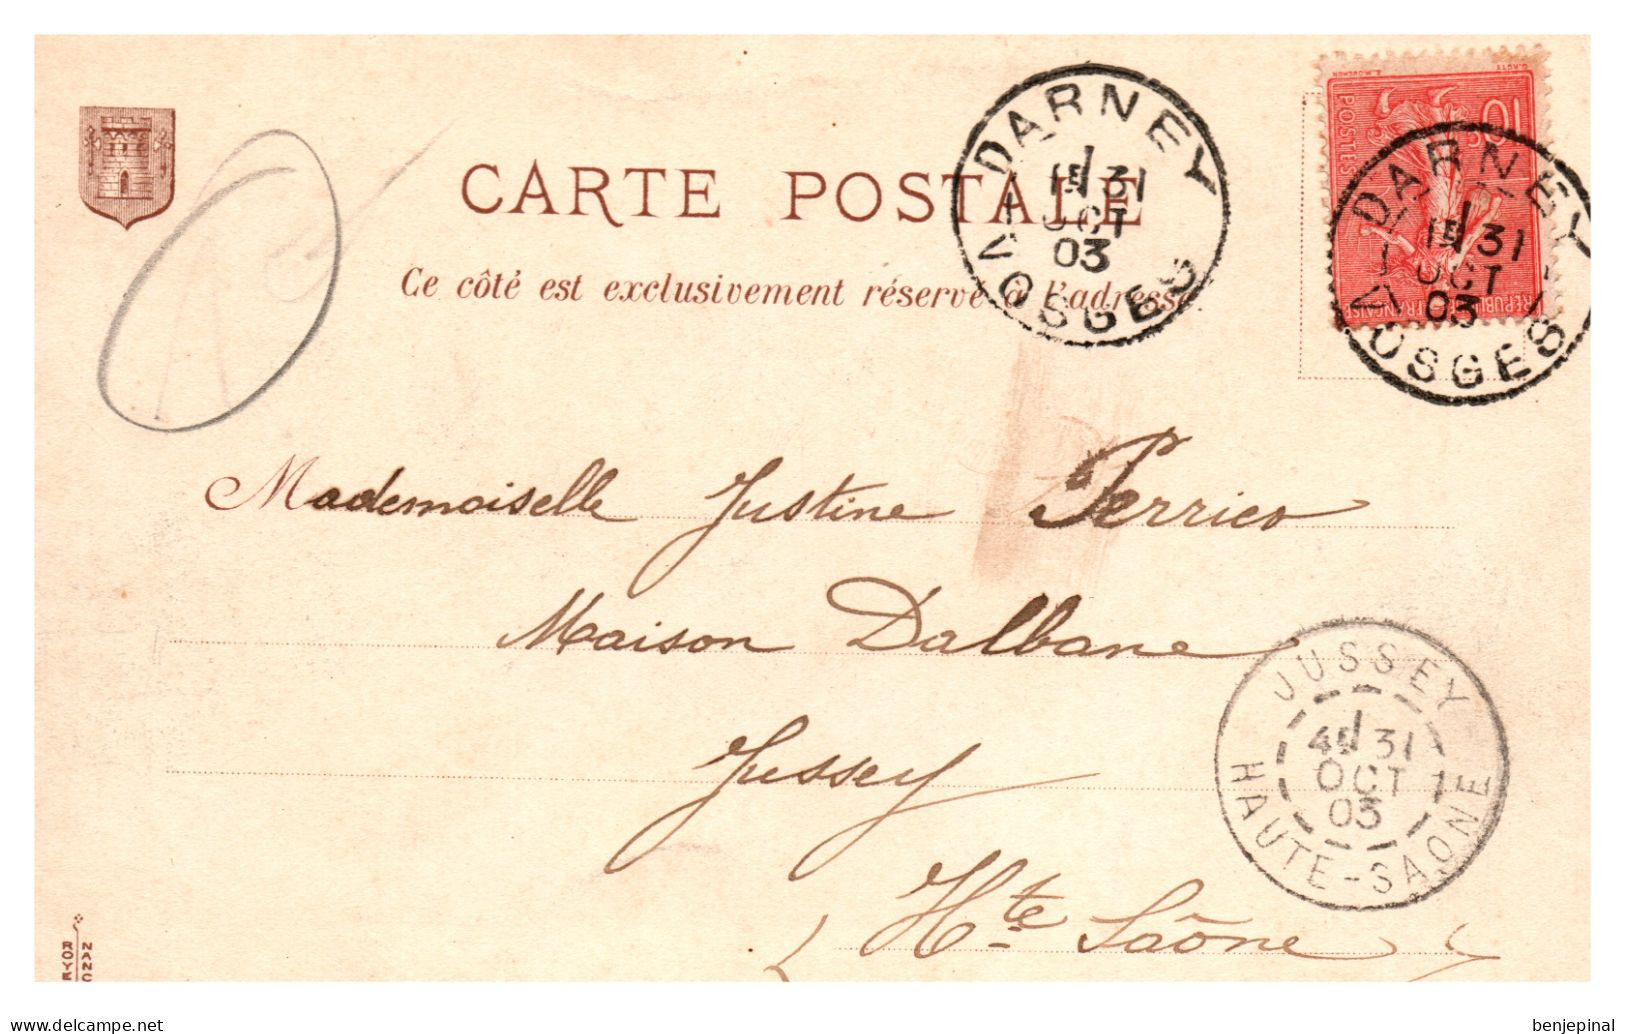 CARTE POSTALE
Ce côté est exclusivement réservé à l'adresse
DARNEY
1E 31
OCT
03
VOSGES
10
POSTES
REPUBLIQUE FRANÇAISE
DARNEY
1E 31
OCT
03
VOSGES
Mademoiselle Justine Perrico
Maison Dalbane
Jussey
(Hte Saône)
JUSSEY
4E 31
OCT
03
HAUTE-SAONE
ROYE
NANC
delcampe.net
benjepinal